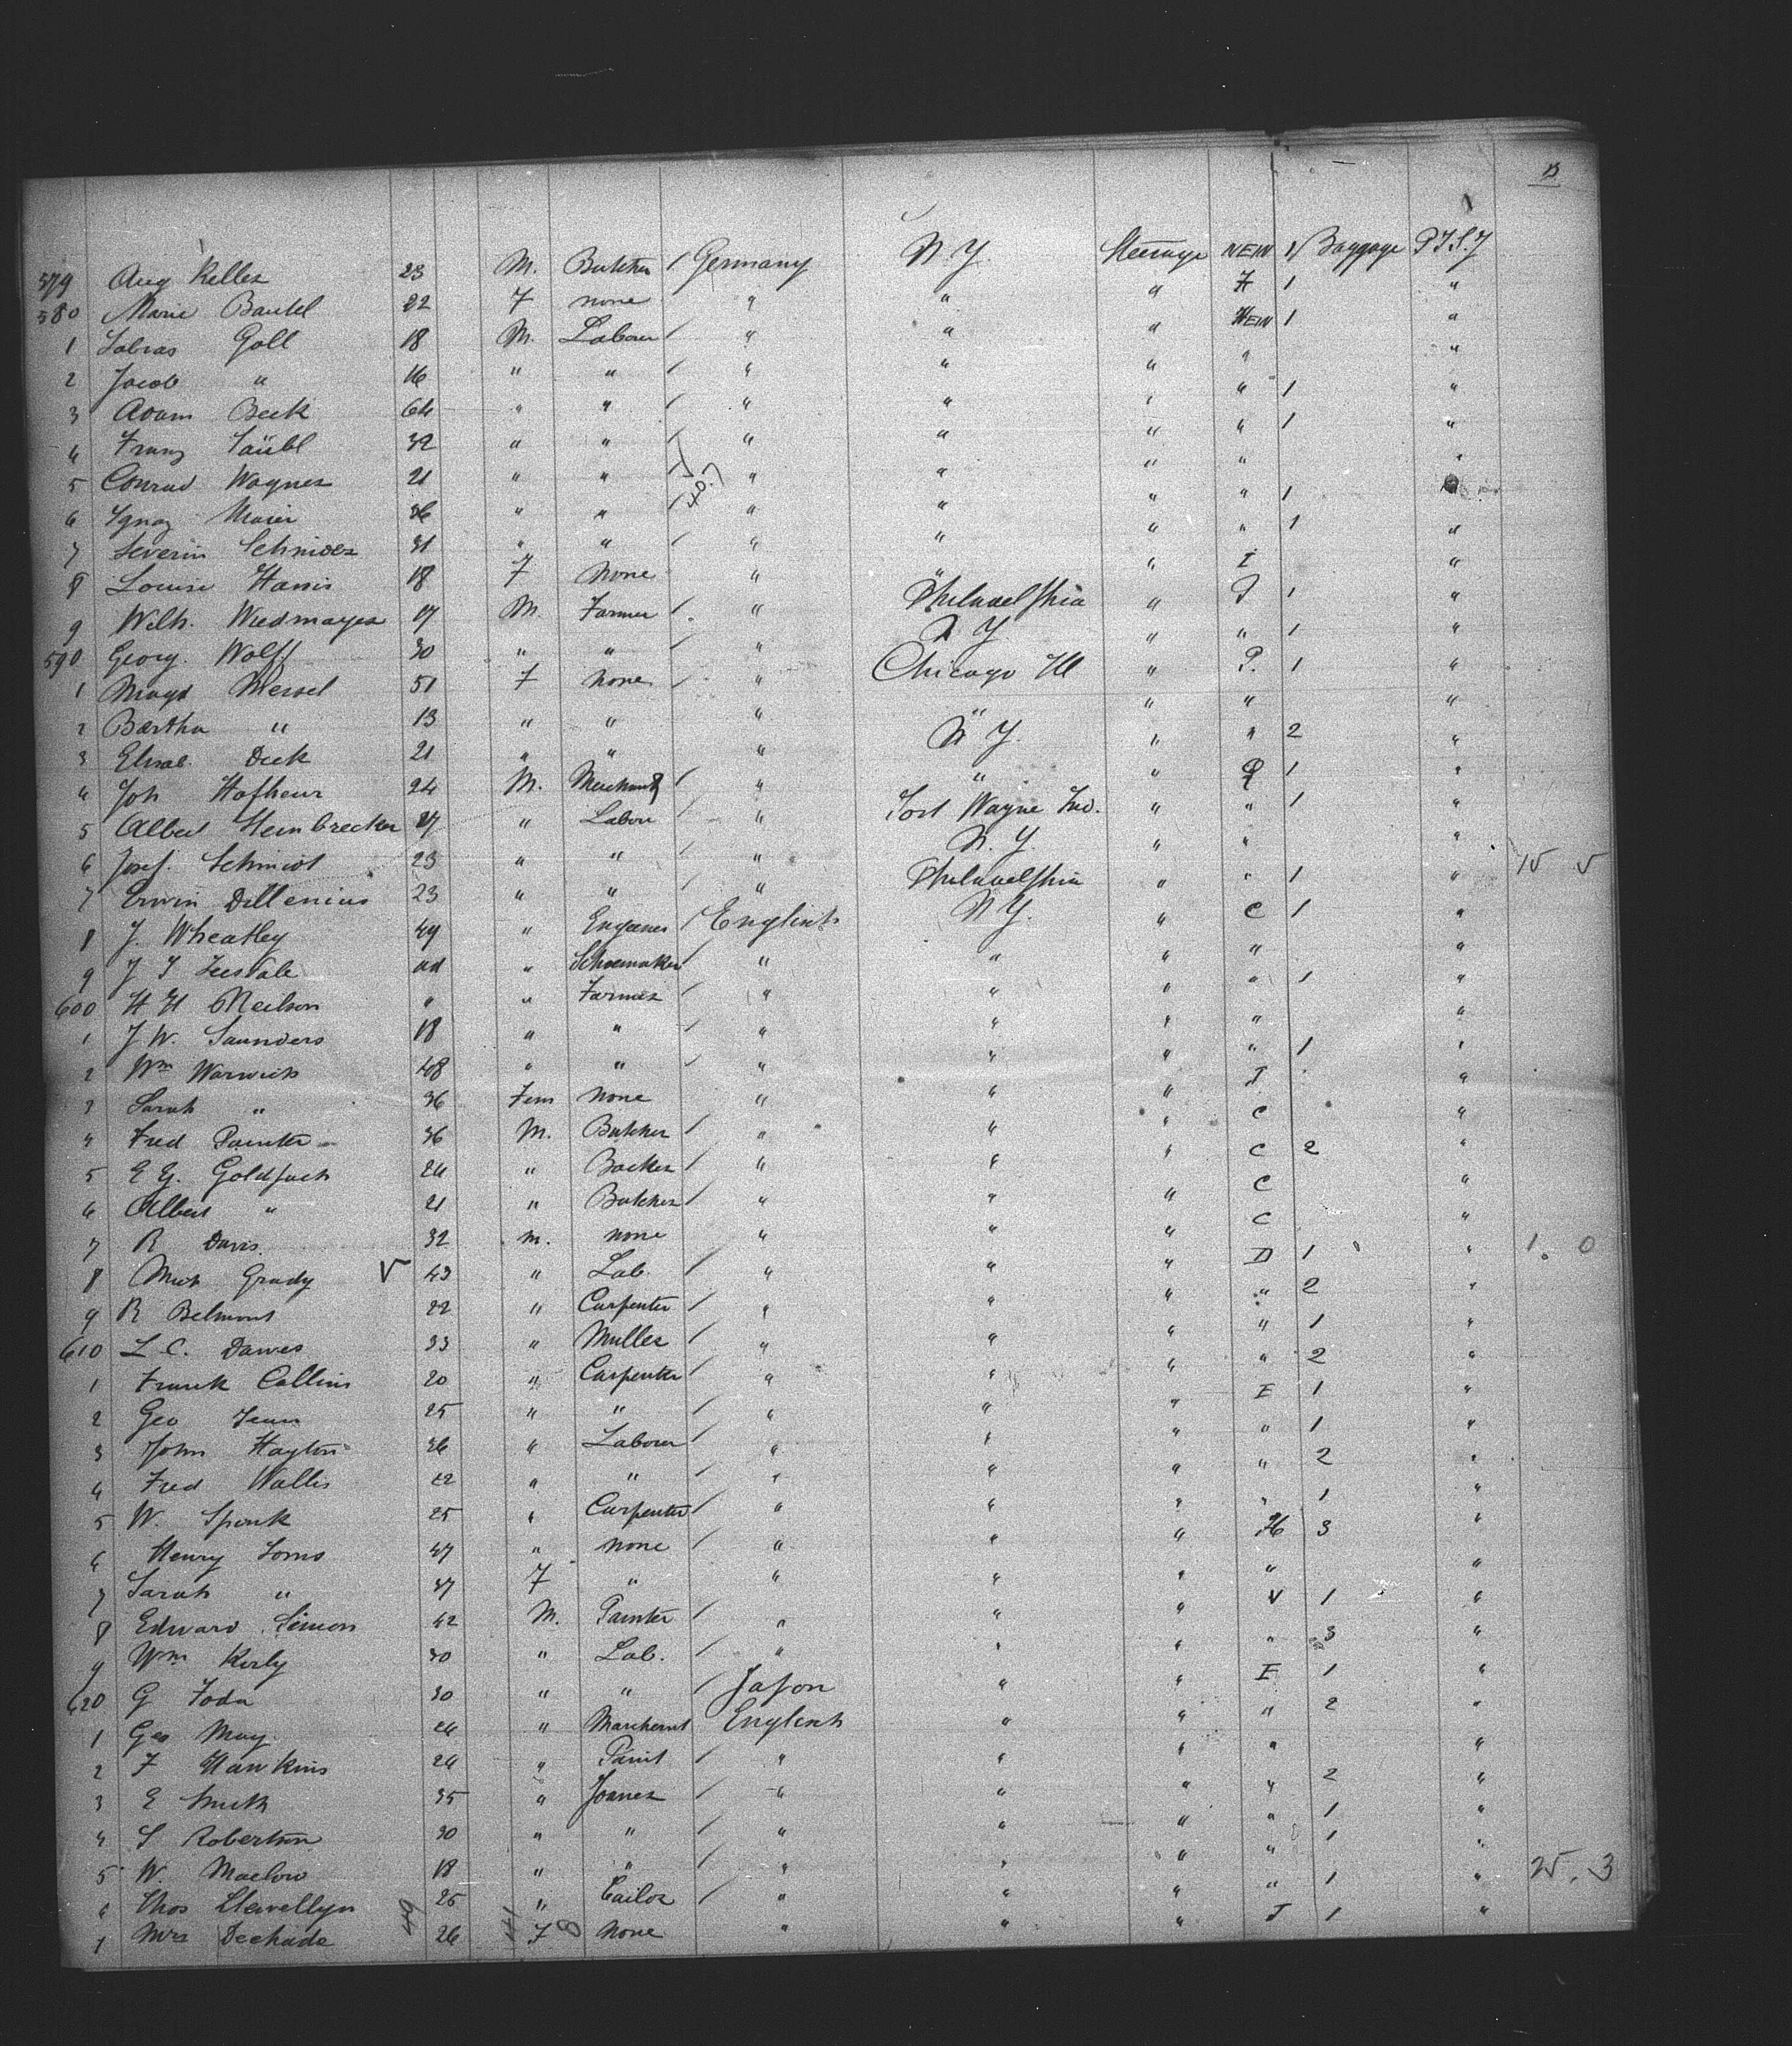 579 Aug Keller 23 M. Butcher / Germany N Y. Steerage NEIN 1/ Baggage P J.S.J
580 Marie Bautel 22 F none " " " H 1 "
1 Goll 18 M. Labour / " " " NEIN 1 "
2 Jacob " 16 " " / " " " " "
3 Adam Beck 64 " " / " " " " 1 "
4 Franz 32 " " / " " " " 1 "
5 Conrad Wagner 21 " " / " " " " "
6 Ignaz Maier 36 " " / " " " " 1
7 Severin Schnider 31 " " / " " " " 1 "
8 Louise Harris 18 F None " " " I "
9 Wilh. Wiedmayer 17 M. Farmer / " Philadelphia " P 1 "
590 Georg. Wolff 30 " " / " N Y. " " 1 "
1 Wessel 51 F None / " Chicago Ill " P. 1 "
2 Bertha " 13 " " " " " " "
3 Elisab. Dick 21 " " " N Y. " " 2 "
4 Joh Hofheur 24 M. Merchant / " " " P 1 "
5 Albert Heinbrecker 27 " Labour / " Fort Wayne Ind. " " 1 "
6 Josef. Schmidt 23 " " / " N. Y. " " "
7 Erwin Dillenius 23 " " / " Philadelphia " " 1 " 15 5
8 J. Wheatley 49 " Engeener / English N Y. " C 1 "
9 J T Teesdale ad " Schoemaker / " " " " "
600 H H Neilson " " Farmer / " " " " 1 "
1 J W. Saunders 18 " " / " " " " "
2 Wm Warwick 48 " " / " " " " 1 "
3 Sarah " 36 Fem None " " " J "
4 Fred Painter 36 M. Butcher / " " " C "
5 E G. Goldfach 24 " Backer / " " " C 2 "
6 Albert " 21 " Butcher / " " " C "
7 R Davis. 32 m. none " " " C "
8 Mich Grady V 43 " Lab. / " " " D 1 " 1. 0
9 R Belmont 22 " Carpenter / " " " " 2 "
610 L C. Dawes 33 " Muller / " " " " 1 "
1 Frank Collins 20 " Carpenter / " " " " 2 "
2 Geo 25 " " / " " " E 1 "
3 John Hayton 36 " Labour / " " " " 1 "
4 Fred Wallis 22 " " / " " " " 2 "
5 W. Spink 25 " Carpenter / " " " " 1 "
6 Henry Toms 47 " none / " " " H 3 "
7 Sarah " 37 F " " " " " "
8 Edward Simon 42 M. Painter / " " " V 1 "
9 Wm Kirly 30 " Lab. / " " " " 3 "
620 G Toda 30 " " / Japon " " E 1 "
1 Geo May 24 " English " " " 2 "
2 F Hawkins 24 " Paint / " " " " "
3 E Smith 35 " Joaner / " " " " 2 "
4 S Robertson 30 " " / " " " " 1 "
5 W. Maclow 18 " " / " " " " 1 "
6 Thos Llewellyn 25 " Tailor / " " " " 1 " 25. 3
7 Mrs Dechade 26 F None " " " J 1 "